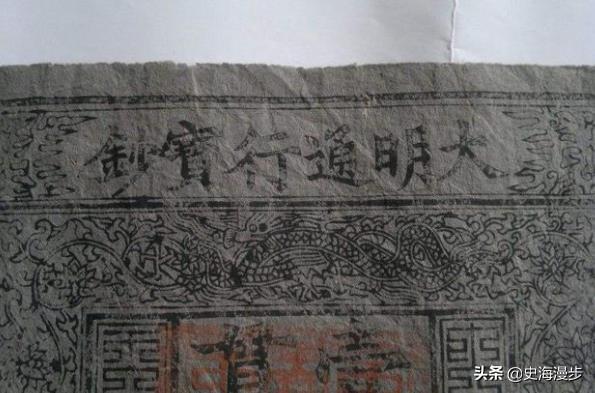 大明通行寶鈔
壹貫
头条 @史海漫步